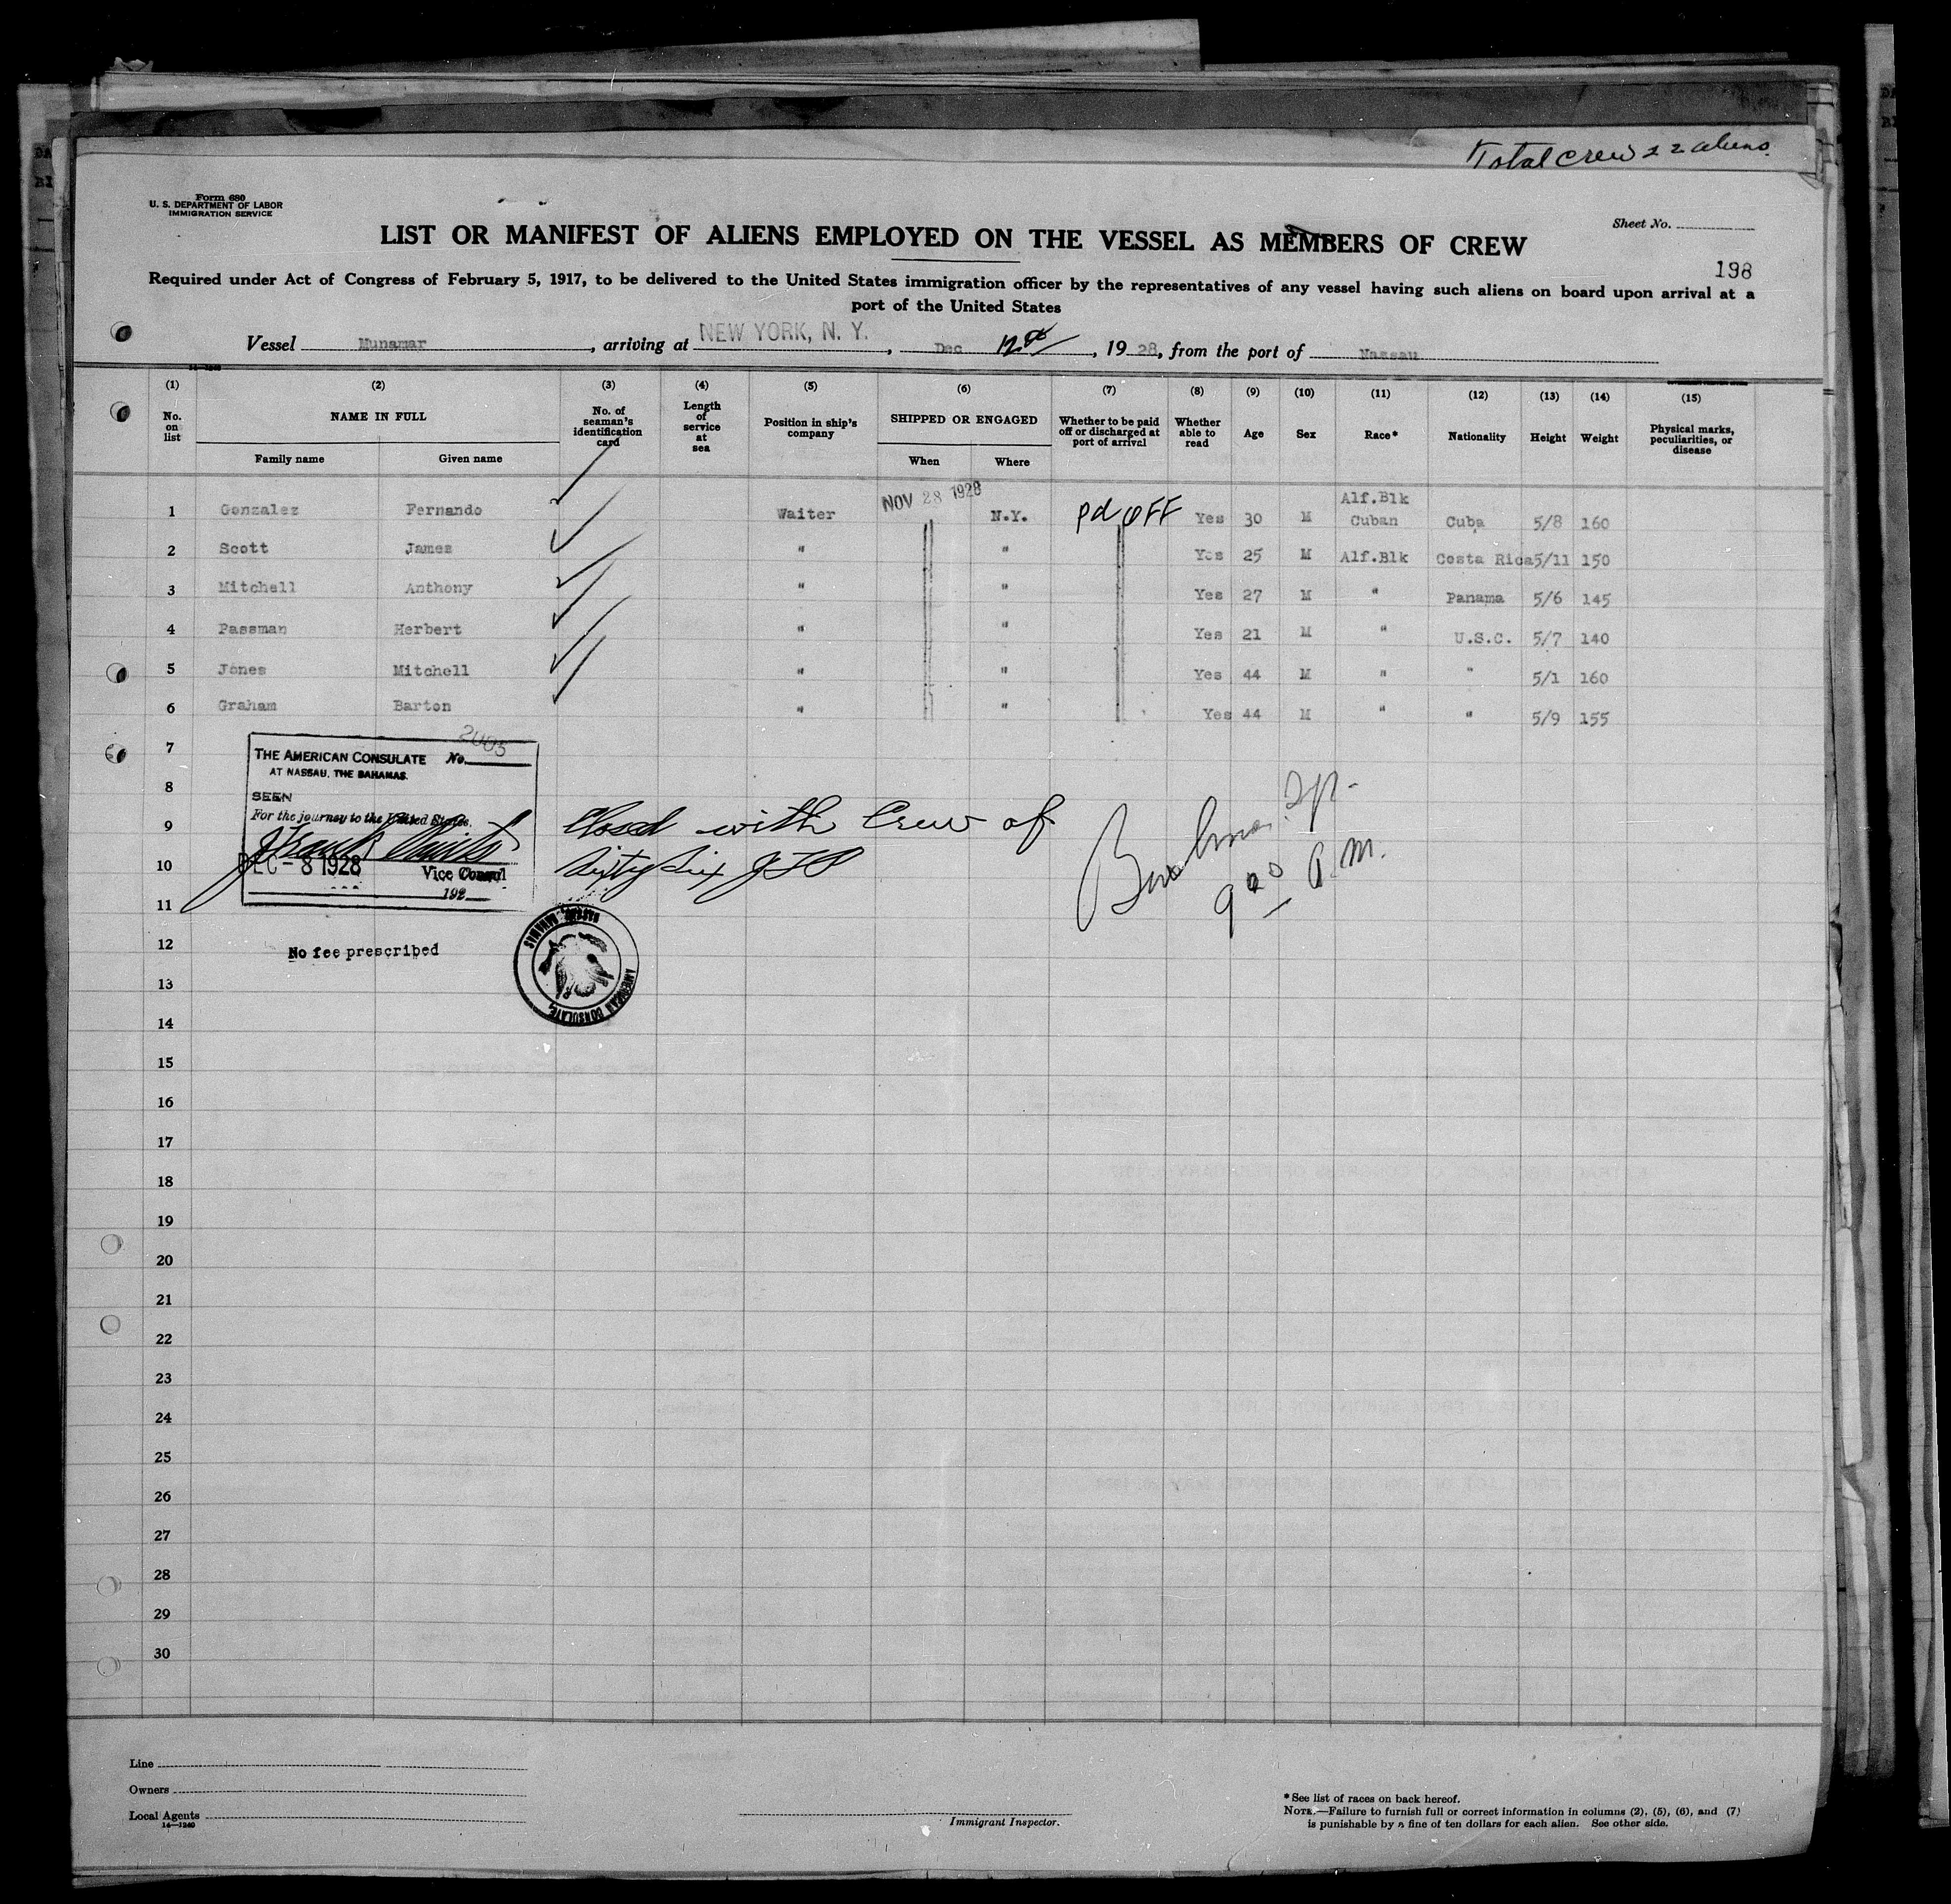 Total Crew 22 aliens.
Form 680
U. S. DEPARTMENT OF LABOR
IMMIGRATION SERVICE
Sheet No.
LIST OR MANIFEST OF ALIENS EMPLOYED ON THE VESSEL AS MEMBERS OF CREW
198
Required under Act of Congress of February 5, 1917, to be delivered to the United States immigration officer by the representatives of any vessel having such aliens on board upon arrival at a
port of the United States
Vessel Munamar, arriving at NEW YORK, N. Y., Dec 12th, 1928, from the port of Nassau
(1) (2) (3) (4) (5) (6) (7) (8) (9) (10) (11) (12) (13) (14) (15)
No. on list NAME IN FULL No. of seaman's identification card Length of service at sea Position in ship's company SHIPPED OR ENGAGED Whether to be paid off or discharged at port of arrival Whether able to read Age Sex Race* Nationality Height Weight Physical marks, peculiarities, or disease
Family name Given name When Where
1 Gonzalez Fernando Waiter NOV 28 1928 N.Y. Pd OFF Yes 30 M Alf.Blk Cuban Cuba 5/8 160
2 Scott James " " Yes 25 M Alf.Blk Costa Rica 5/11 150
3 Mitchell Anthony " " Yes 27 M " Panama 5/6 145
4 Passman Herbert " " Yes 21 M " U.S.C. 5/7 140
5 Jones Mitchell " " Yes 44 M " " 5/1 160
6 Graham Barton " " Yes 44 M " " 5/9 155
7
2005
THE AMERICAN CONSULATE No.
AT NASSAU, THE BAHAMAS.
8
SEEN
For the journey to the United States.
9
Closed with Crew of
10
Sixty Six
DEC - 8 1928
Vice Consul
192
9 00 A.M.
11
12
No fee prescribed
NASSAU, BAHAMAS
AMERICAN CONSULATE,
13
14
15
16
17
18
19
20
21
22
23
24
25
26
27
28
29
30
Line
Owners
Local Agents
14—1240
Immigrant Inspector.
*See list of races on back hereof.
NOTE.—Failure to furnish full or correct information in columns (2), (5), (6), and (7)
is punishable by a fine of ten dollars for each alien. See other side.